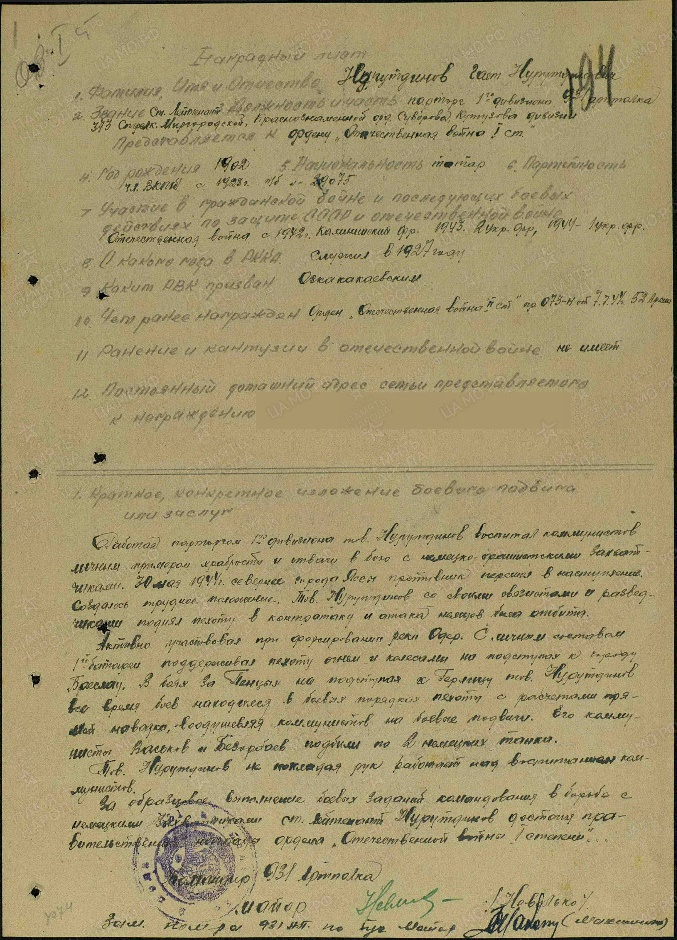 Наградный лист
1. Фамилия, Имя и Отчество Нурутдинов Гаян
2. Звание Ст. Лейтенант Должность и часть парторг 1го дивизиона 931 артполка
373 Стрелк. Миргородской, Краснознаменной орд. Суворова, Кутузова дивизии
Представляется к ордену „Отечественная война I ст"
4. Год рождения 1902 5. Национальность татар 6. Партийность
чл. ВКП(б) с 1928г. п/б №
7. Участие в гражданской войне и последующих боевых
действиях по защите СССР и отечественной войне
Отечественная война с 1942г. Калининский фр. 1943. 2 укр. фр, 1944 - 1 укр. фр.
8. С какого года в РККА служил в 1927 году
9. Каким РВК призван
10. Чем ранее награжден Орден „Отечественная война II ст" пр 073-н от 7.7.44 52 Армии
11. Ранение и контузии в отечественной войне не имеет
12. Постоянный домашний адрес семьи представляемого
к награждению
1. Краткое, конкретное изложение боевого подвига
или заслуг
Работая парторгом 1го дивизиона тов. Нурутдинов воспитал коммунистов
личным примером храбрости и отваги в бою с немецко-фашистскими захват-
чиками. 30 мая 1944г. севернее города Яссы противник перешел в наступление.
Создалось трудное положение. Тов. Нурутдинов со своими связистами и развед-
чиками поднял пехоту в контратаку и атака немцев была отбита.
Активно участвовал при форсировании реки Одер. С личным составом
1го батареи поддерживал пехоту огнем и колесами на подступах к городу
Бреслау. В боях за Пенцых на подступах к Герлицу тов. Нурутдинов
все время боев находился в боевых порядках пехоты с расчетами пря-
мой наводки, воодушевляя коммунистов на боевые подвиги. Его комму-
нисты Васьков и подбили по 2 немецких танка.
Тов. Нурутдинов не покладая рук работает над воспитанием ком-
мунистов.
За образцовое выполнение боевых заданий командования в борьбе с
немецкими захватчиками ст. лейтенант Нурутдинов достоин пра-
вительственной награды ордена „Отечественной война I степени"...
Командир 931 Артполка
майор / Ковалько /
Зам. Ком-ра 931 АП. по Майор